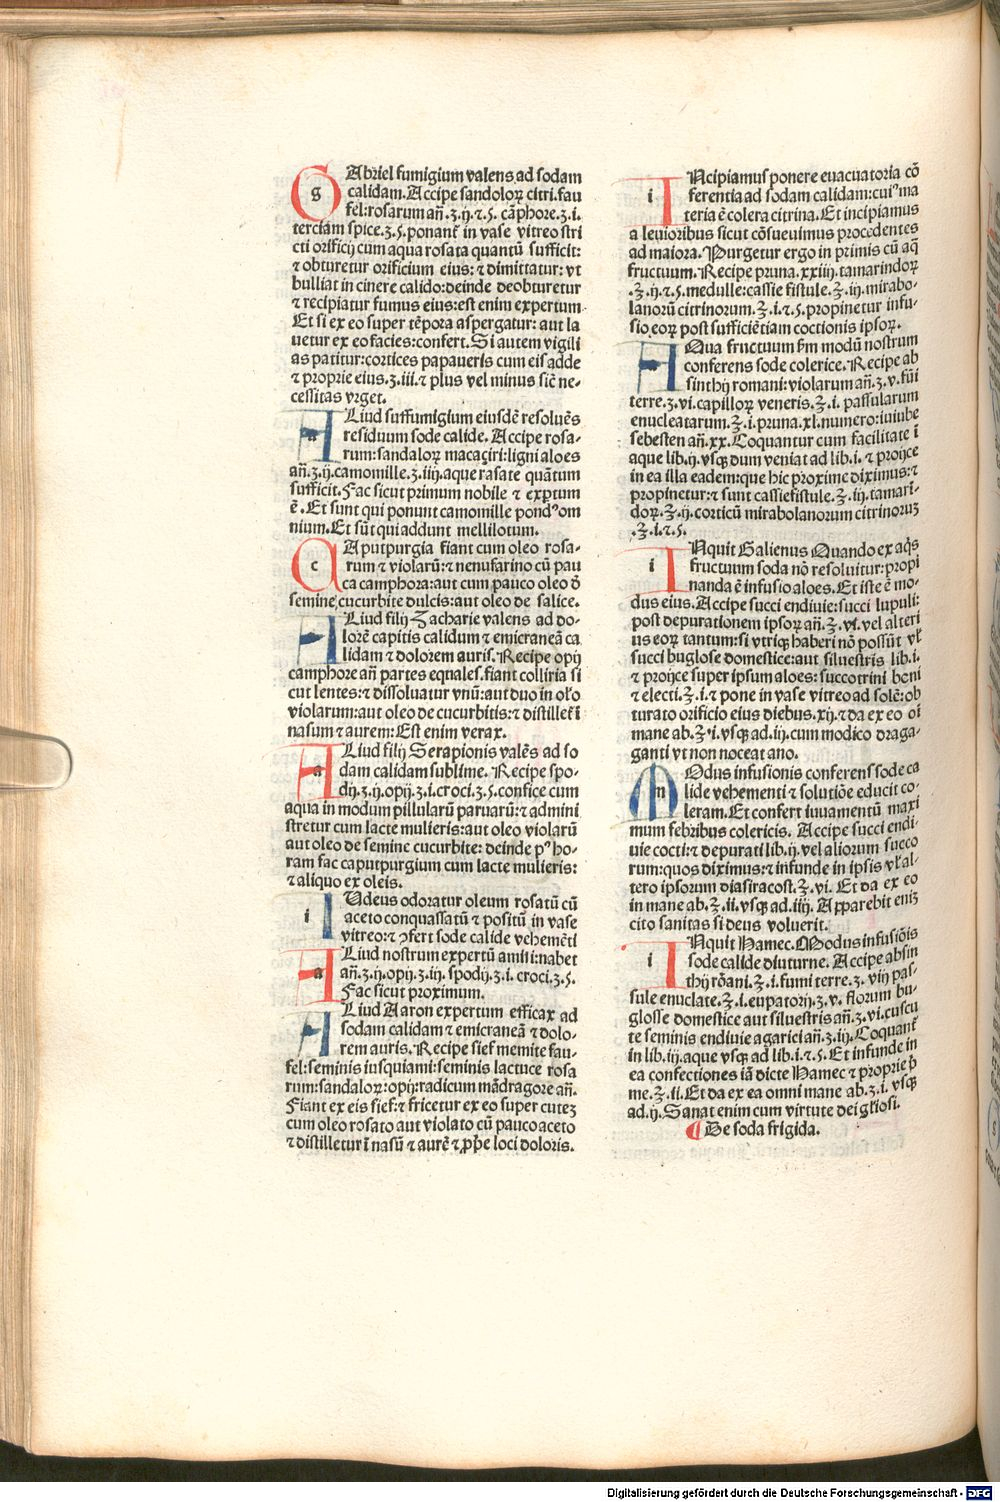 GAbriel fumigium valens ad sodam
calidam. Accipe sandoloꝝ citri. fau
fel: rosarum añ.ʒ.ij.⁊.5. cãphore.ʒ.i.
terciam spice.ʒ.5. ponant᷑ in vase vitreo stri
cti orificij cum aqua rosata quantũ sufficit:
⁊ obturetur orificium eius: ⁊ dimittatur: vt
bulliat in cinere calido: deinde deobturetur
⁊ recipiatur fumus eius: est enim expertum
Et si ex eo super tẽpora aspergatur: aut la
uetur ex eo facies: confert. Si autem vigili
as patitur: cortices papaueris cum eis adde
⁊ proprie eius.ʒ.iii. ⁊ plus vel minus sic̃ ne-
cessitas vrget.
ALiud suffumigium eiusdẽ resoluẽs
residuum sode calide. Accipe rosa-
rum: sandaloꝝ macaçiri: ligni aloes
añ.ʒ.ij. camomille.ʒ.iiij. aque rasate quãtum
sufficit. Fac sicut primum nobile ⁊ exp̱tum
ẽ. Et sunt qui ponunt camomille pondꝰ om
nium. Et sũt qui addunt mellilotum.
CAputpurgia fiant cum oleo rosa-
rum ⁊ violarũ: ⁊ nenufarino cũ pau
ca camphora: aut cum pauco oleo õ
semine cucurbite dulcis: aut oleo de salice.
ALiud filij Zacharie valens ad do-
lorẽ capitis calidum ⁊ emicraneã ca
lidam ⁊ dolorem auris. Recipe opij
camphore añ partes equales. fiant colliria si
cut lentes: ⁊ dissoluatur vnũ: aut duo in olo
violarum: aut oleo de cucurbitis: ⁊ distillet᷑ ĩ
nasum ⁊ aurem: Est enim verax.
ALiud filij Serapionis valẽs ad so
dam calidam sublime. Recipe spo-
dij.ʒ.ij. opij.ʒ.i. croci.ʒ.5. confice cum
aqua in modum pillularũ paruarũ: ⁊ admini
stretur cum lacte mulieris: aut oleo violarũ
aut oleo de semine cucurbite: deinde pꝰ ho-
ram fac caputpurgium cum lacte mulieris:
⁊ aliquo ex oleis.
IUdeus odoratur oleum rosatũ cũ
aceto conquassatũ ⁊ positũ in vase
vitreo: ⁊ ꝯfert sode calide vehemẽti
ALiud nostrum expertũ amiti: nabet
añ.ʒ.ij. opij.ʒ.iij. spodij.ʒ.i. croci.ʒ.5.
Fac sicut proximum.
ALiud Aaron expertum efficax ad
sodam calidam ⁊ emicraneã ⁊ dolo-
rem auris. Recipe sief memite fau-
fel: seminis iusquiami: seminis lactuce rosa
rum: sandaloꝝ: opij: radicum mãdragore añ.
Fiant ex eis sief: ⁊ fricetur ex eo super cuteʒ
cum oleo rosato aut violato cũ pauco aceto
⁊ distilletur ĩ nasũ ⁊ aurẽ ⁊ ꝓpe loci doloris.
INcipiamus ponere euacuatoria cõ
ferentia ad sodam calidam: cuiꝰ ma
teria ẽ colera citrina. Et incipiamus
a leuioribus sicut cõsueuimus procedentes
ad maiora. Purgetur ergo in primis cũ aq̃
fructuum. Recipe pruna.xxiiij. tamarindoꝝ
.℥.ij.⁊.5. medulle: cassie fistule.℥.iij. mirabo-
lanorũ citrinorum.℥.i.⁊.5. propinetur infu-
sio eoꝝ post sufficiẽtiam coctionis ipsoꝝ.
AQua fructuum ẜm modũ nostrum
conferens sode colerice. Recipe ab
sinthij romani: violarum añ.ʒ.v. fũi
terre.ʒ.vi. capilloꝝ veneris.℥.i. passularum
enucleatarum.℥.i. pruna.xl. numero: iuiube
sebesten añ.xx. Coquantur cum facilitate ĩ
aque lib.ij. vsqꝫ dum veniat ad lib.i. ⁊ proijce
in ea illa eadem: que hic proxime diximus: ⁊
propinetur: ⁊ sunt cassiefistule.℥.iij. tamarĩ-
doꝝ.℥.ij. corticũ mirabolanorum citrinoruʒ
.℥.i.⁊.5.
INquit Galienus Quando ex aq̃s
fructuum soda nõ resoluitur: propi
nanda ẽ infusio aloes. Et iste ẽ mo-
dus eius. Accipe succi endiuie: succi lupuli:
post depurationem ipsoꝝ añ.℥.vi. vel alteri
us eoꝝ tantum: si vtriqꝫ haberi nõ possũt vł
succi buglose domestice: aut siluestris lib.i.
⁊ proijce super ipsum aloes: succotrini boni
⁊ electi.℥.i. ⁊ pone in vase vitreo ad solẽ: ob
turato orificio eius diebus.xij. ⁊ da ex eo oĩ
mane ab.℥.i. vsqꝫ ad.iij. cum modico draga-
ganti vt non noceat ano.
MOdus infusionis conferens sode ca
lide vehementi ⁊ solutiõe educit co-
leram. Et confert iuuamentũ maxi
mum febribus colericis. Accipe succi endi-
uie cocti: ⁊ depurati lib.ij. vel aliorum succo
rum: quos diximus: ⁊ infunde in ipsis vł al-
tero ipsorum diasiracost.℥.vi. Et da ex eo
in mane ab.℥.ii. vsqꝫ ad.iiij. Apparebit eniʒ
cito sanitas si deus voluerit.
INquit Hamec. Modus infusiõis
sode calide diuturne. Accipe absin
thij rõani.℥.i. fumi terre.ʒ.viij pas-
sule enuclate.℥.i. eupatorij.ʒ.v. florum bu-
glosse domestice aut siluestris añ.ʒ.vi. cuscu
te seminis endiuie agarici añ.ʒ.iij. Coquant᷑
in lib.iij. aque vsqꝫ ad lib.i.⁊.5. Et infunde in
ea confectiones iã dicte Hamec ⁊ proprie p̃
me.℥.ii. Et da ex ea omni mane ab.ʒ.i. vsqꝫ
ad.ij. Sanat enim cum virtute dei gl̃iosi.
¶ De soda frigida.
Digitalisierung gefördert durch die Deutsche Forschungsgemeinschaft - DFG